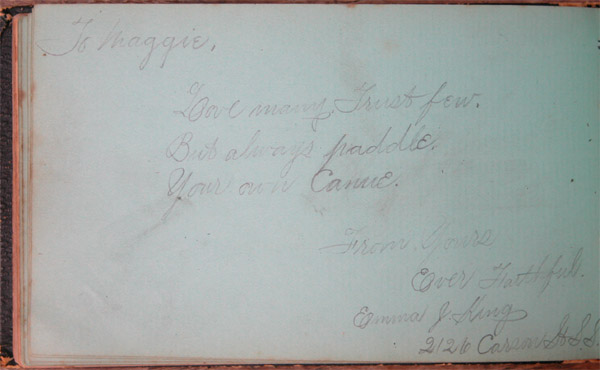 To Maggie.
Love many Trust few.
But always paddle.
Your own Canue.
From Yours
Ever Faithfull.
Emma J. King
2126 Carson St S.S.